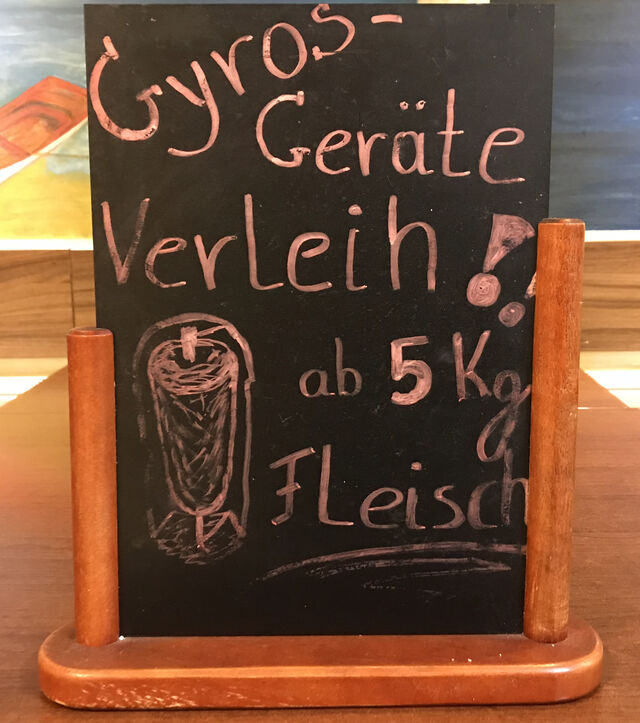 Gyros-
Geräte
Verleih!!
ab 5 Kg
Fleisch